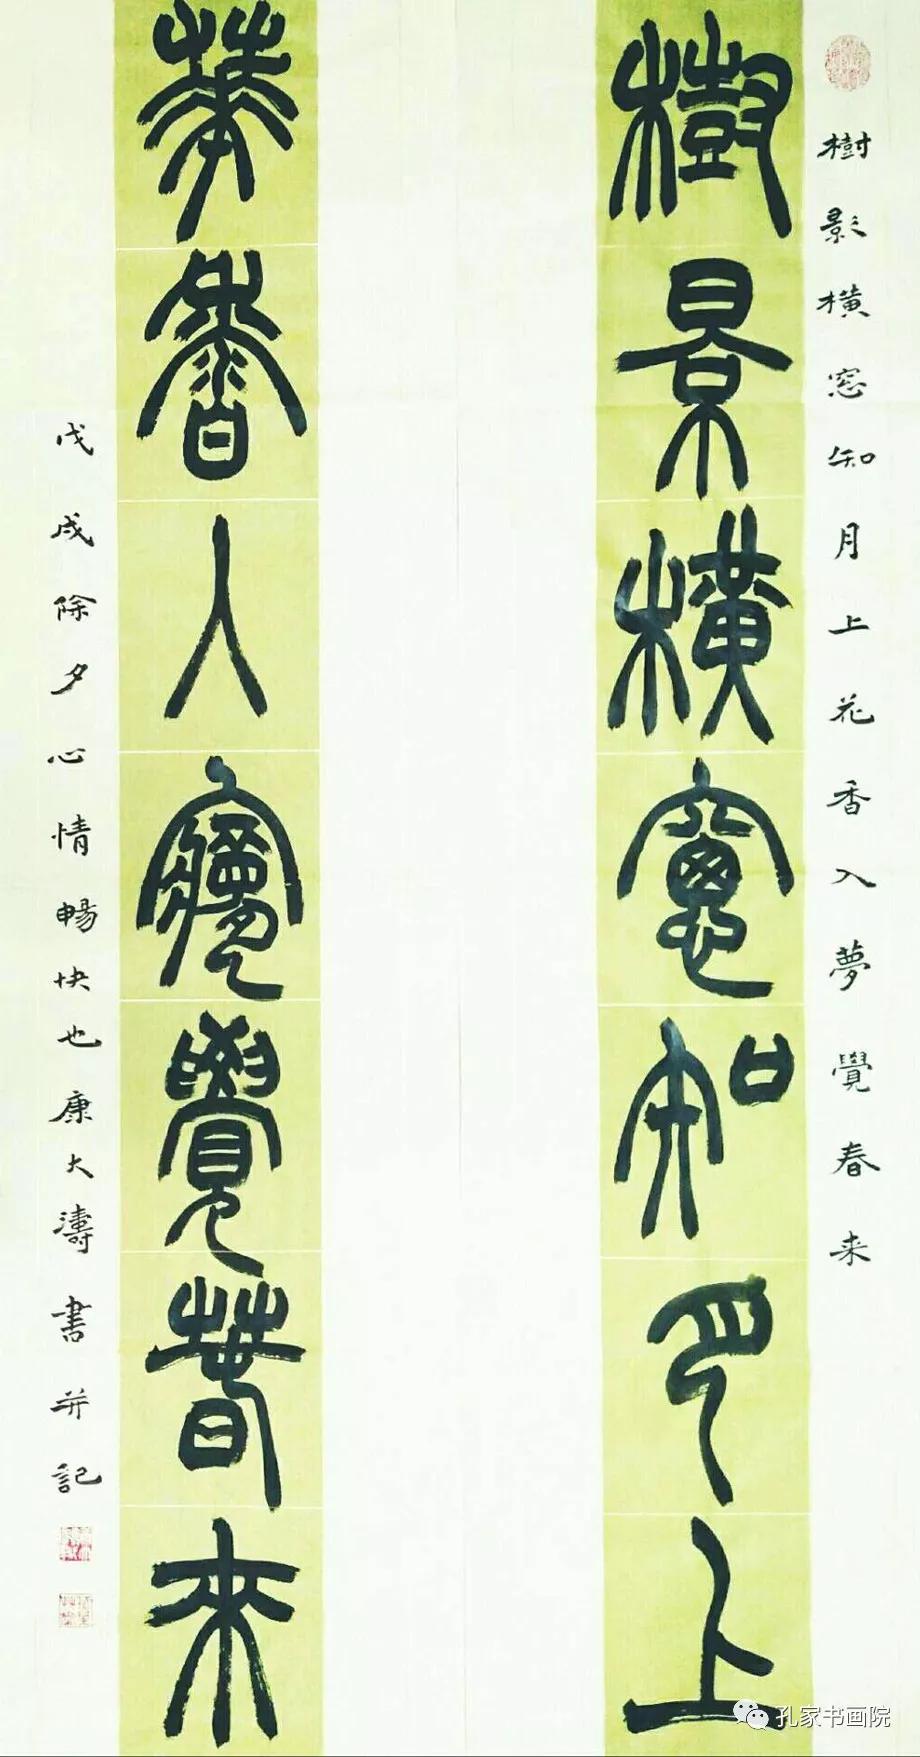 樹影橫窓知月上花香入夢覺春来
樹景橫窻知月上
華香入寢覺萅來
戊戌除夕心情暢快也康大濤書并記
孔家书画院